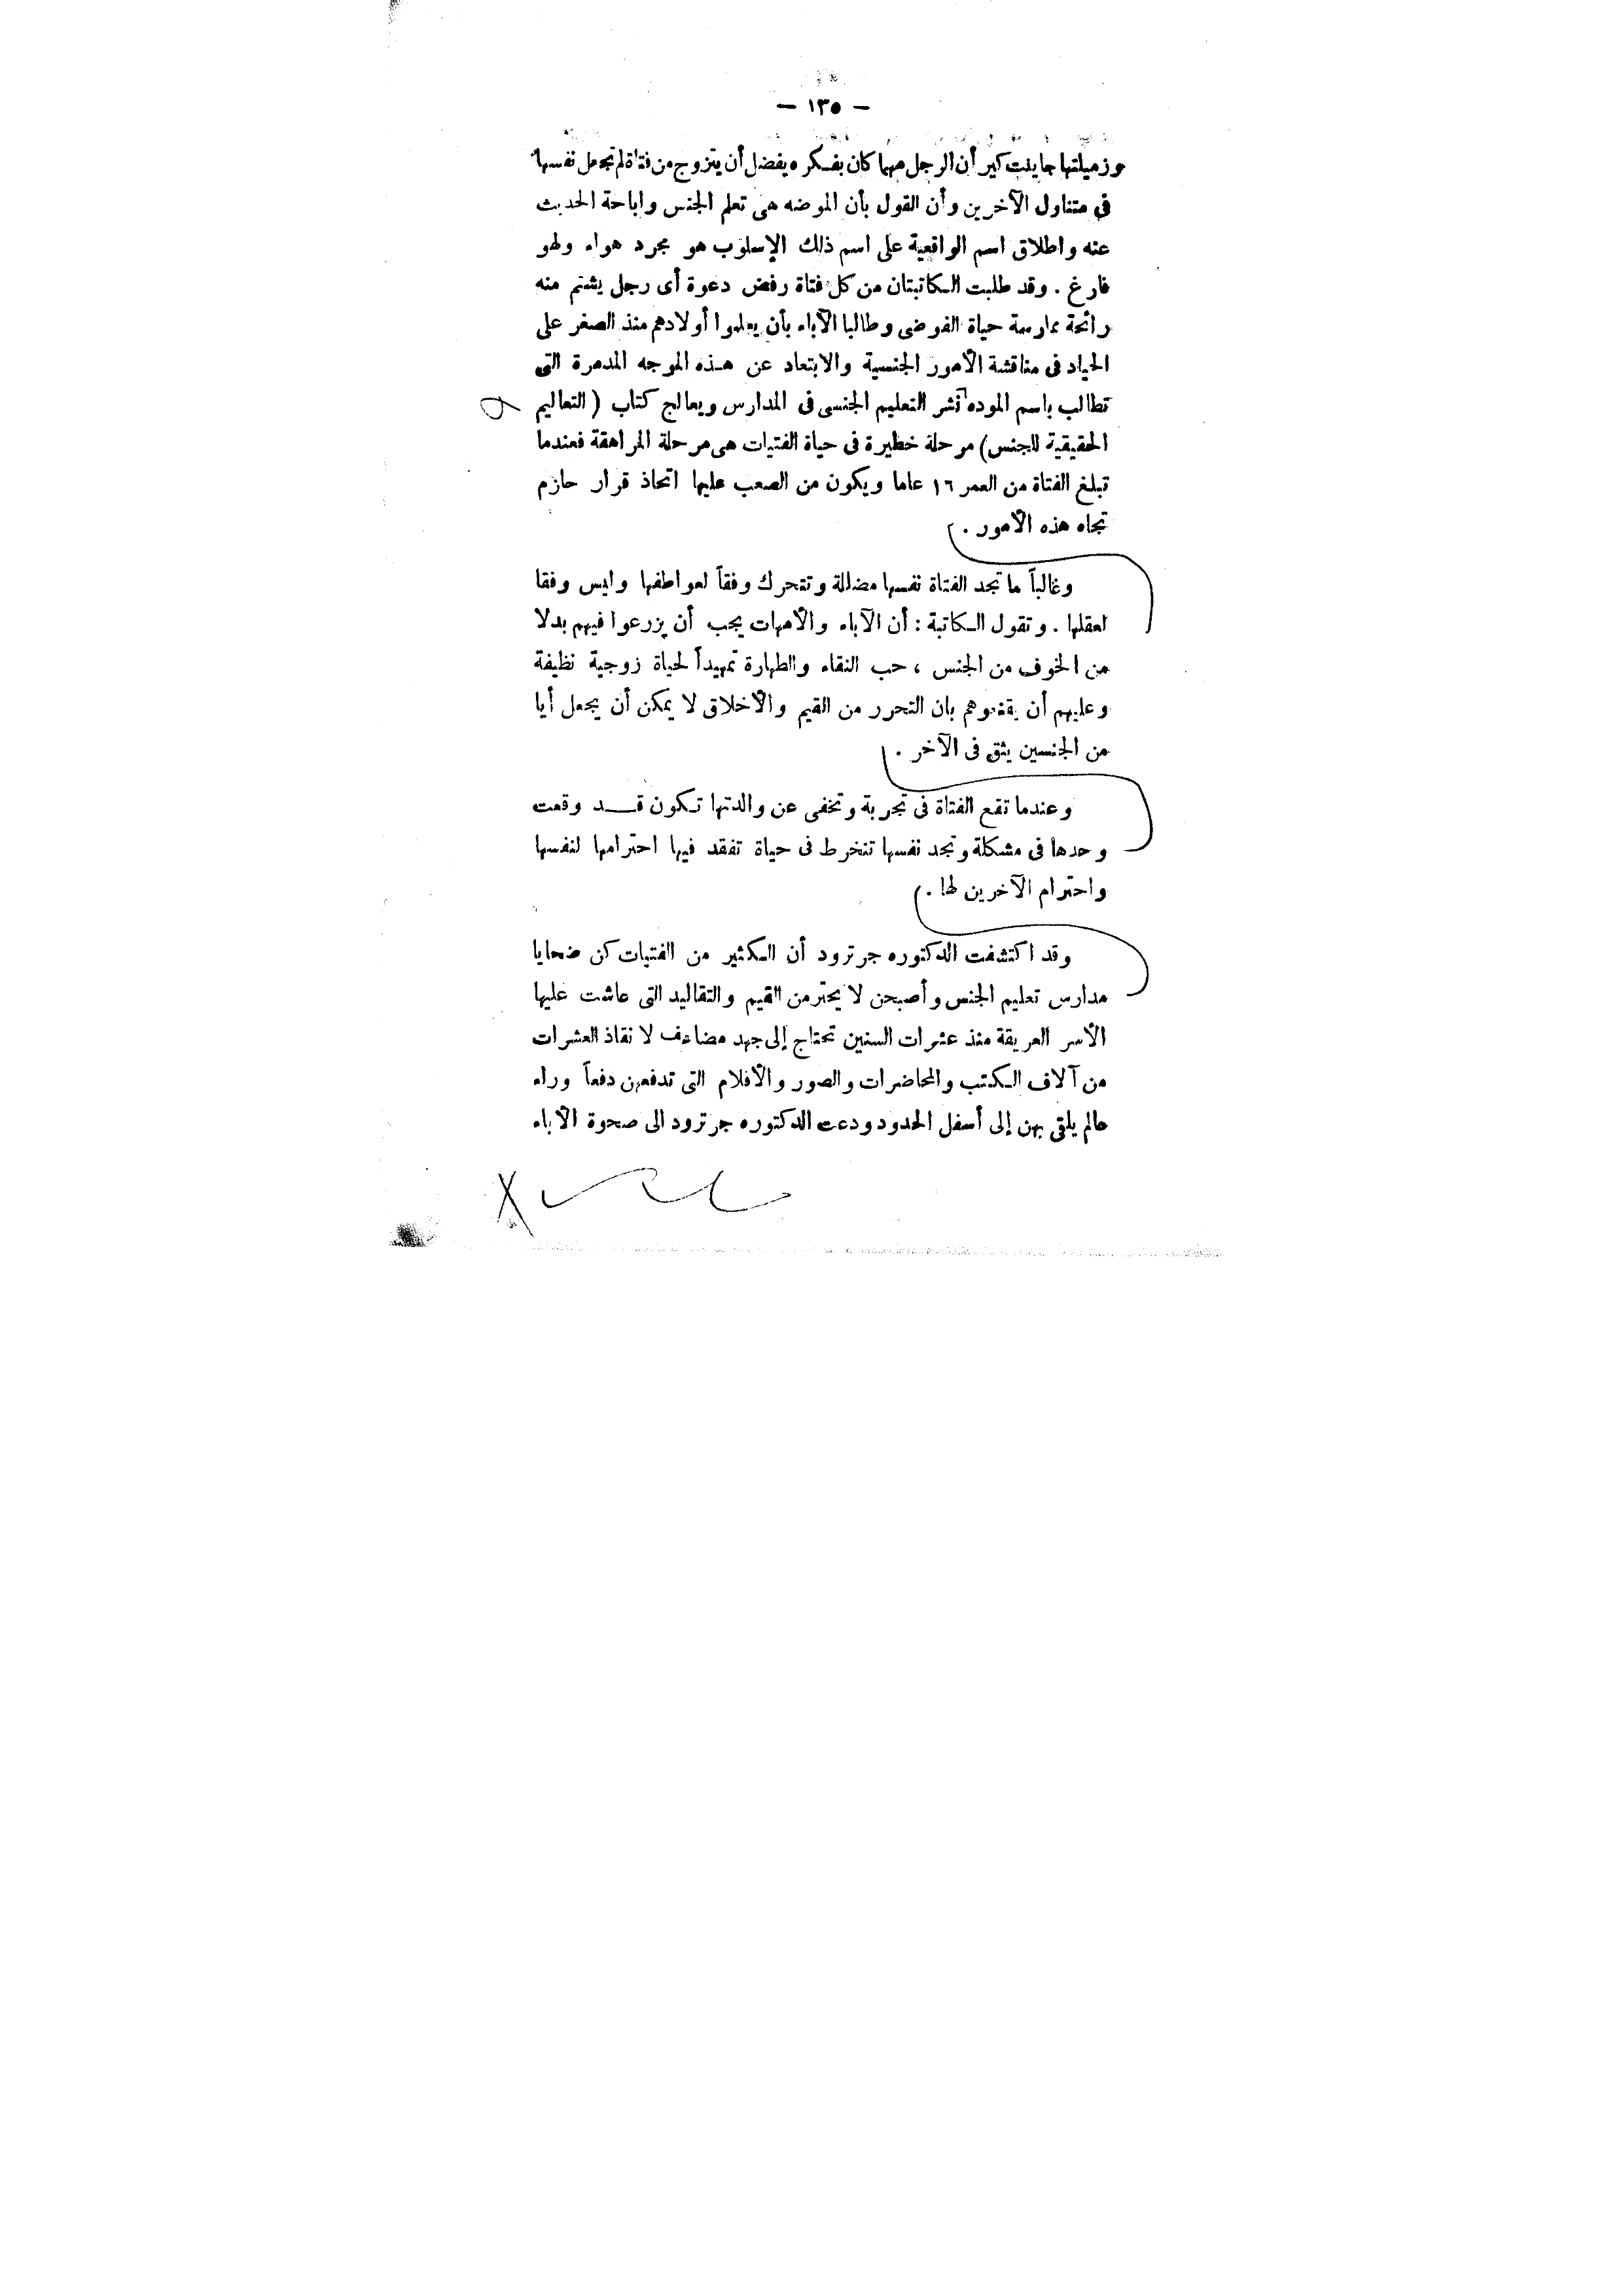 — ١٣٥ —
وزميلتها جاينت كير أن الرجل مهما كان بفكره يفضل أن يتزوج من فتاة لم تجعل نفسها
في متناول الآخرين وأن القول بأن الموضه هى تعلم الجنس واباحة الحديث
عنه واطلاق اسم الواقعية على اسم ذلك الإسلوب هو مجرد هواء ولهو
فارغ . وقد طلبت الكاتبتان من كل فتاة رفض دعوة أى رجل يشتم منه
رائحة ممارسة حياة الفوضى وطالبا الآباء بأن يعلموا أولادهم منذ الصغر على
الحياد فى مناقشة الأمور الجنسية والابتعاد عن هذه الموجه المدمرة التى
تطالب باسم الموده نشر التعليم الجنسى فى المدارس ويعالج كتاب ( التعاليم
الحقيقية للجنس) مرحلة خطيرة فى حياة الفتيات هى مرحلة المراهقة فعندما
تبلغ الفتاة من العمر ١٦ عاما ويكون من الصعب عليها اتخاذ قرار حازم
تجاه هذه الأمور .
وغالباً ما تجد الفتاة نفسها مضللة وتتحرك وفقاً لعواطفها وليس وفقا
لعقلها . وتقول الكاتبة : أن الآباء والأمهات يجب أن يزرعوا فيهم بدلا
من الخوف من الجنس ، حب النقاء والطهارة تمهيداً لحياة زوجية نظيفة
وعليهم أن يقنعوهم بان التحرر من القيم والأخلاق لا يمكن أن يجعل أيا
من الجنسين يثق فى الآخر .
وعندما تقع الفتاة فى تجربة وتخفى عن والدتها تكون قد وقعت
وحدها فى مشكلة وتجد نفسها تنخرط فى حياة تفقد فيها احترامها لنفسها
واحترام الآخرين لها .
وقد اكتشفت الدكتوره جرترود أن الكثير من الفتيات كن ضحايا
مدارس تعليم الجنس وأصبحن لا يحترمن القيم والتقاليد التى عاشت عليها
الأسر العريقة منذ عشرات السنين تحتاج إلى جهد مضاعف لا نقاذ العشرات
من آلاف الكتب والمحاضرات والصور والأفلام التى تدفعهن دفعاً وراء
عالم يلقى بهن إلى أسفل الحدود ودعت الدكتوره جرترود الى صحوة الآباء